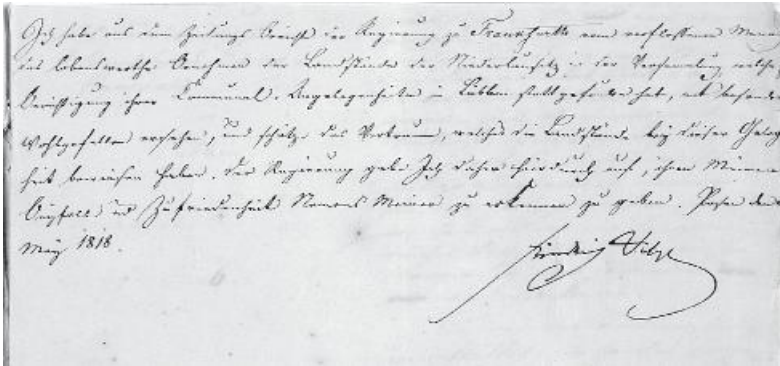 Ich habe aus dem Zeitungs Bericht der Regierung zu Frankfurth vom verflossenen Mona
das lobenswerthe Benehmen der Landstände der Niederlausitz in der Versammlung welche
Berichtigung ihrer Communal-Angelegenheiten in Lübben stattgefunden hat, mit besonde
Wohlgefallen ersehen, und schätze das Vertrauen, welches die Landstände bey dieser Geleg
heit bewiesen haben. Der Regierung gebe Ich daher hierdurch auf, ihnen Meinen
Beyfall und Zufriedenheit Namens Meiner zu erkennen zu geben. Posen den
May 1818.
Friedrich Wilh